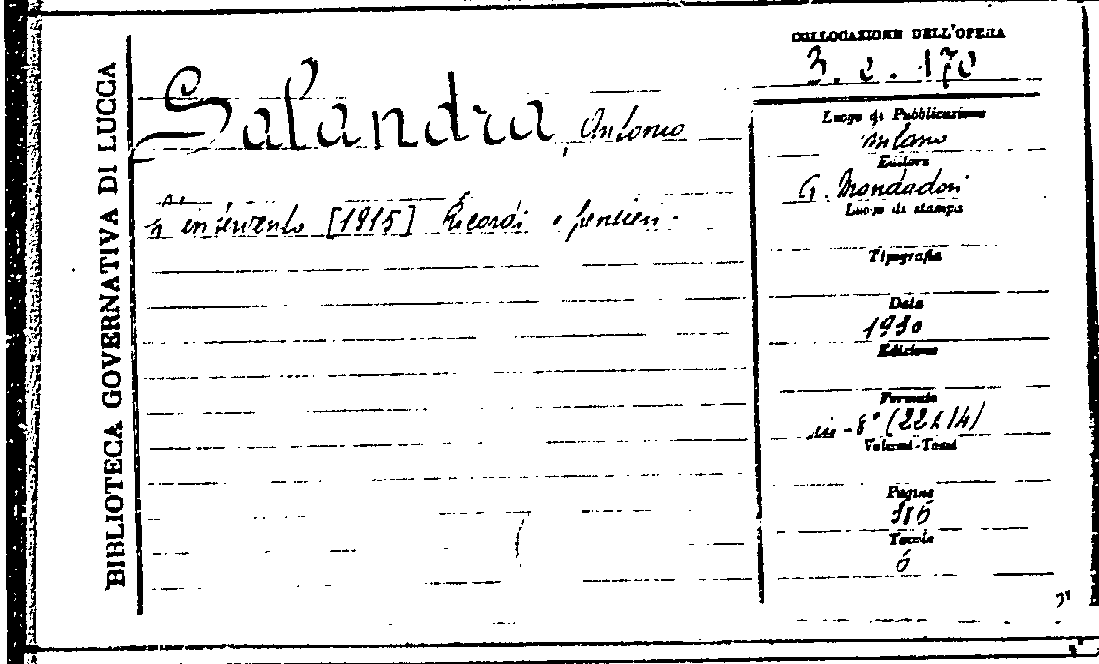 BIBLIOTECA GOVERNATIVA DI LUCCA
Salandra, Antonio
intervento [1915] Ricordi e pensieri.
COLLOCAZIONE DELL'OPERA
3. e. 170
Luogo di Pubblicazione
Milano
Editore
A. Mondadori
Luogo di stampa
Tipografia
Data
1930
Edizione
Formato
in-8° (22x14)
Volumi-Tomi
Pagine
Tavole
6